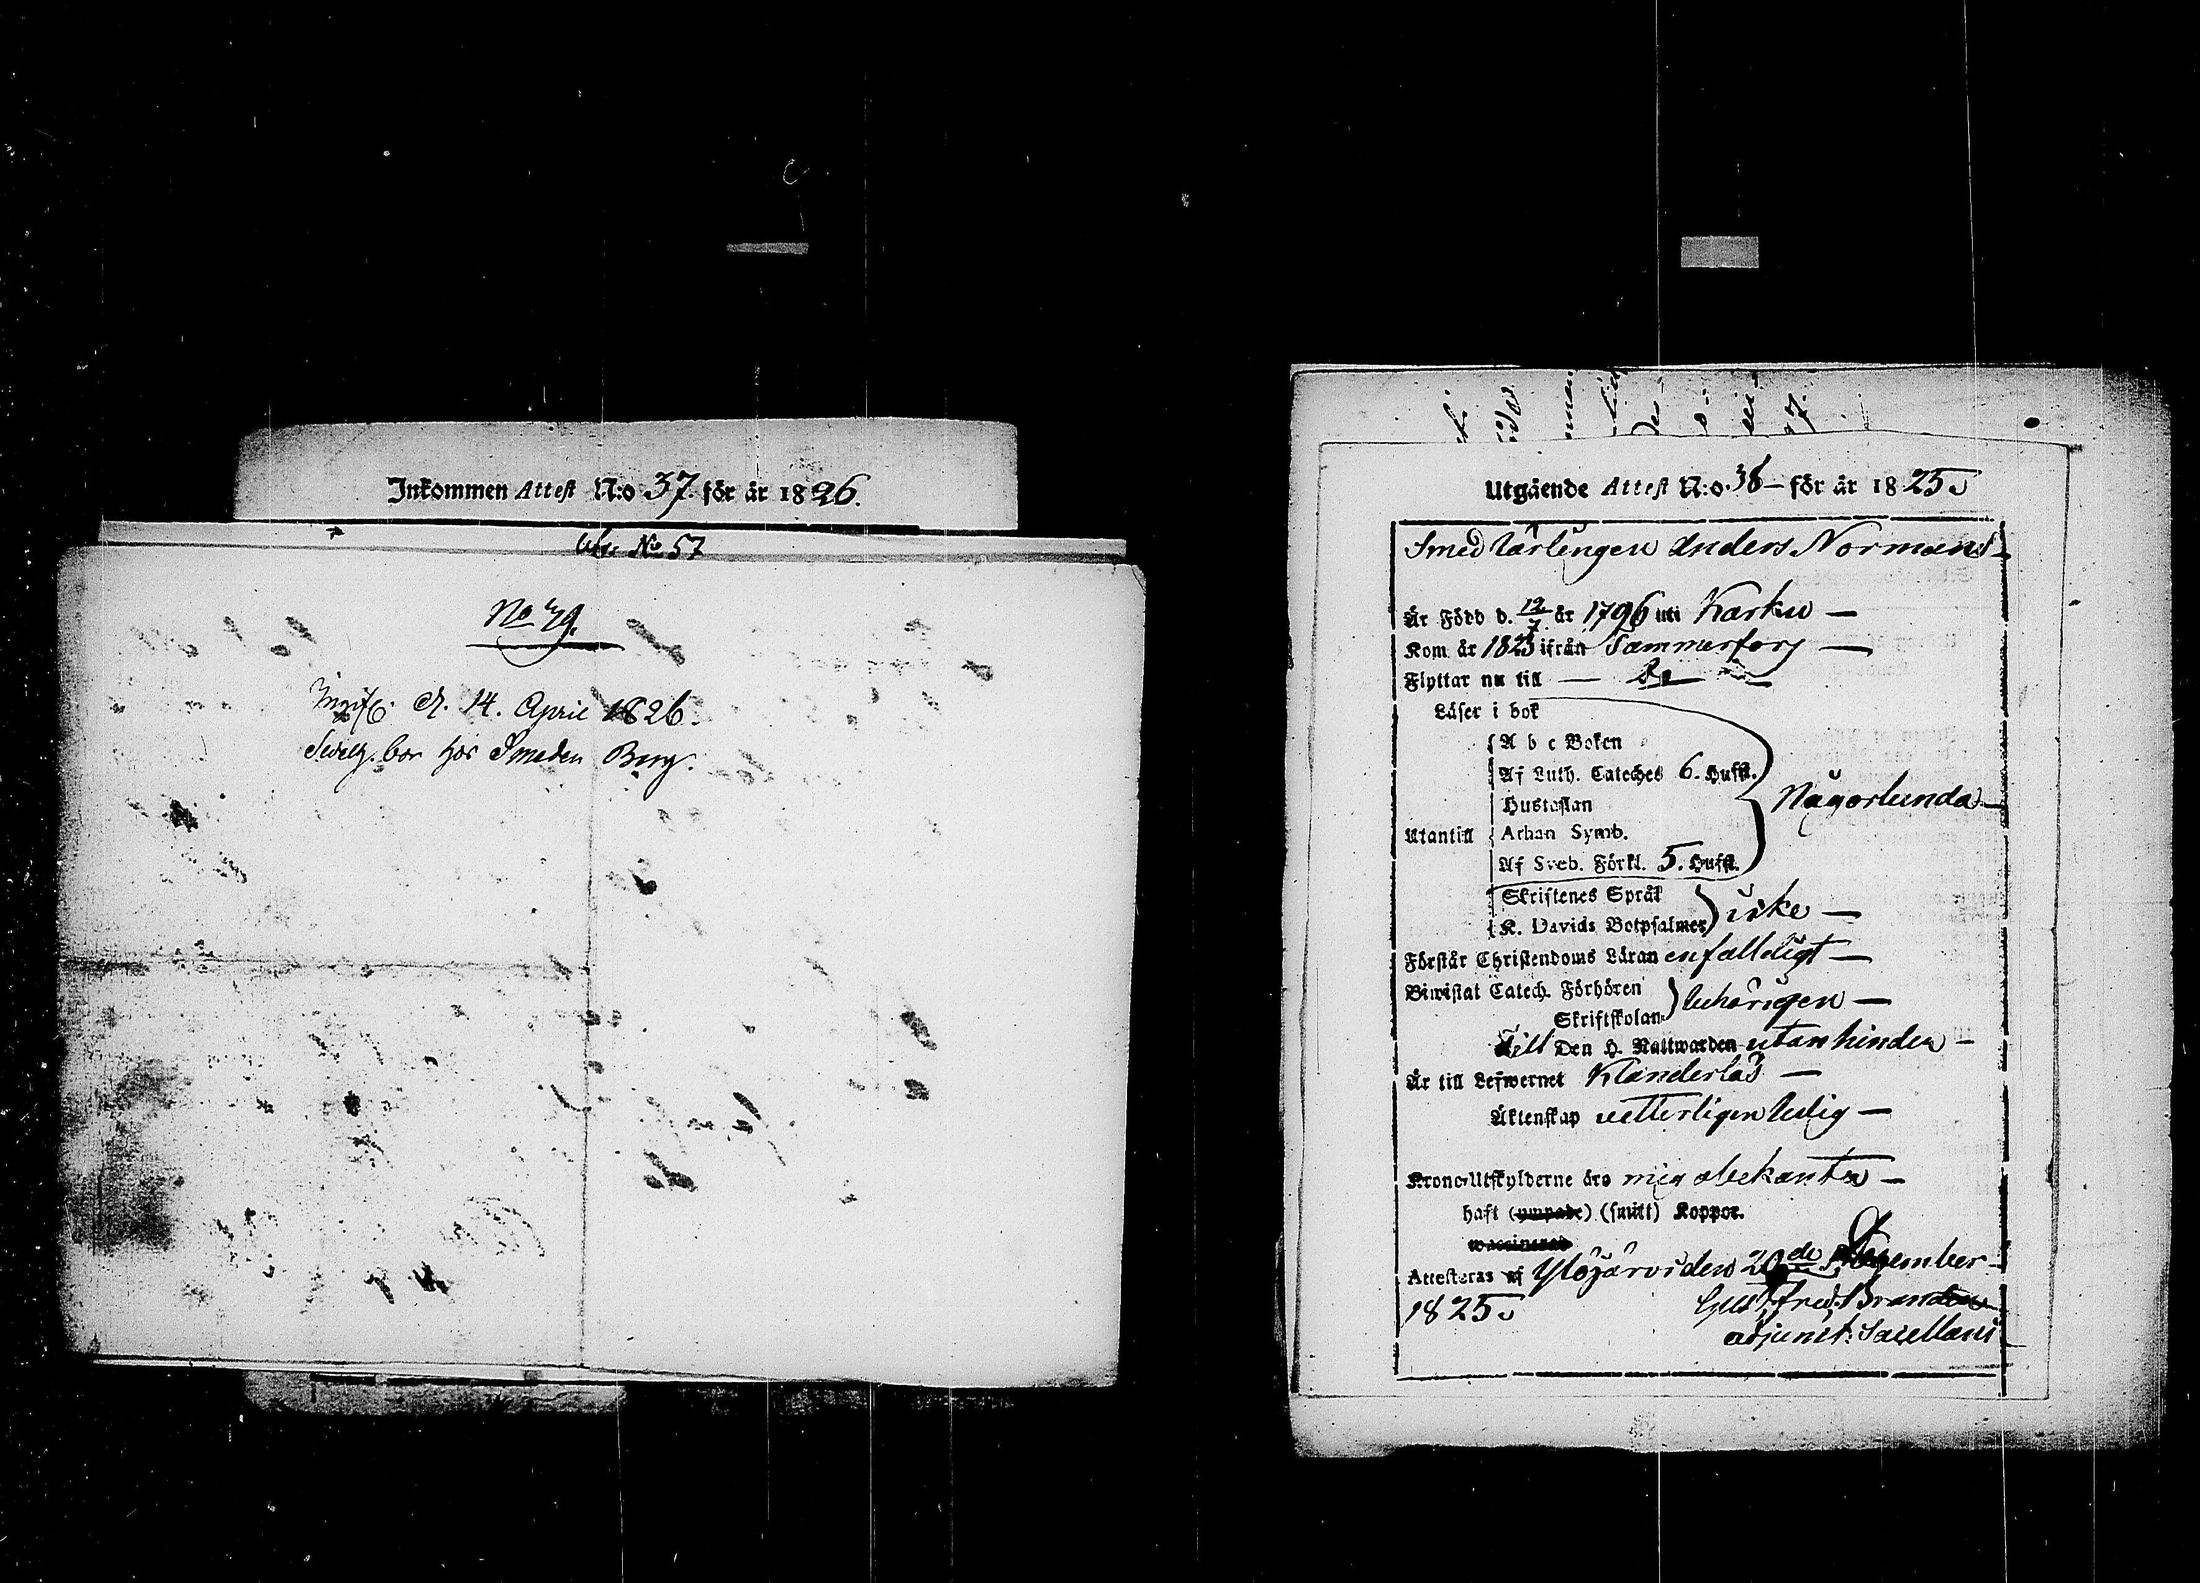 Inkommen Attest N:o 37. för år 1826.
No 57
No 79.
d. 14. April 1826.
bor hos Smeden Berg.
Utgående Attest N:o. 38 – för år 1825
Smed Lärlingen Anders Norman
Är Född d. 12/7 år 1796 uti Karku –
Kom år 1823 ifrån Tammerfors –
Flyttar nu till –
Läser i bok
A b c Boken
Af Luth. Cateches 6. Hufst.
Hustaflan
Någorlunda –
Utantill Athan Symb.
Af Sveb. Förkl. 5. Hufst.
Skriftenes Språk
K. Davids Botpsalmer icke –
Förstår Christendoms Läran enfalldigt –
Biwistat Catech. Förhören
Skriftskolan behörigen –
Till Den H. Nattwarden utan hinder –
Är till Lefwernet Klanderlös –
Äktenskap vetterligen ledig –
KronoUtskylderne äro mig obekanta –
haft (ympade) (smitt) Koppor.
waccinerad
Attesteras af Ylöjärvi den 20de December
1825
Gust. Fred. Brander
adjunct: Sacellani